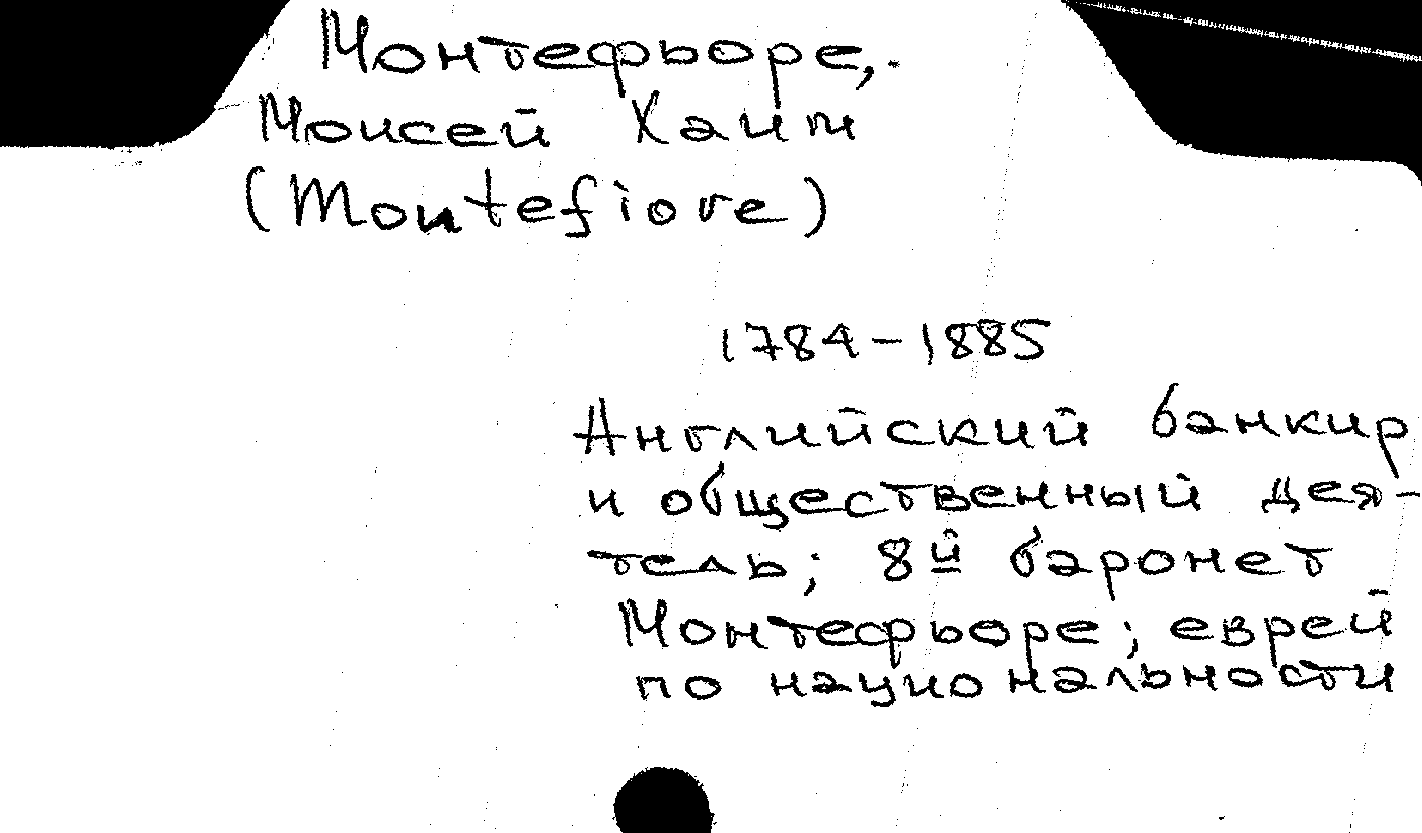 Монтефьоре,
Моисей Хаим
(Montefiore)
1784-1885
Английский банкир
и общественный дея-
тель; 8й баронет
Монтефьоре; еврей
по национальности